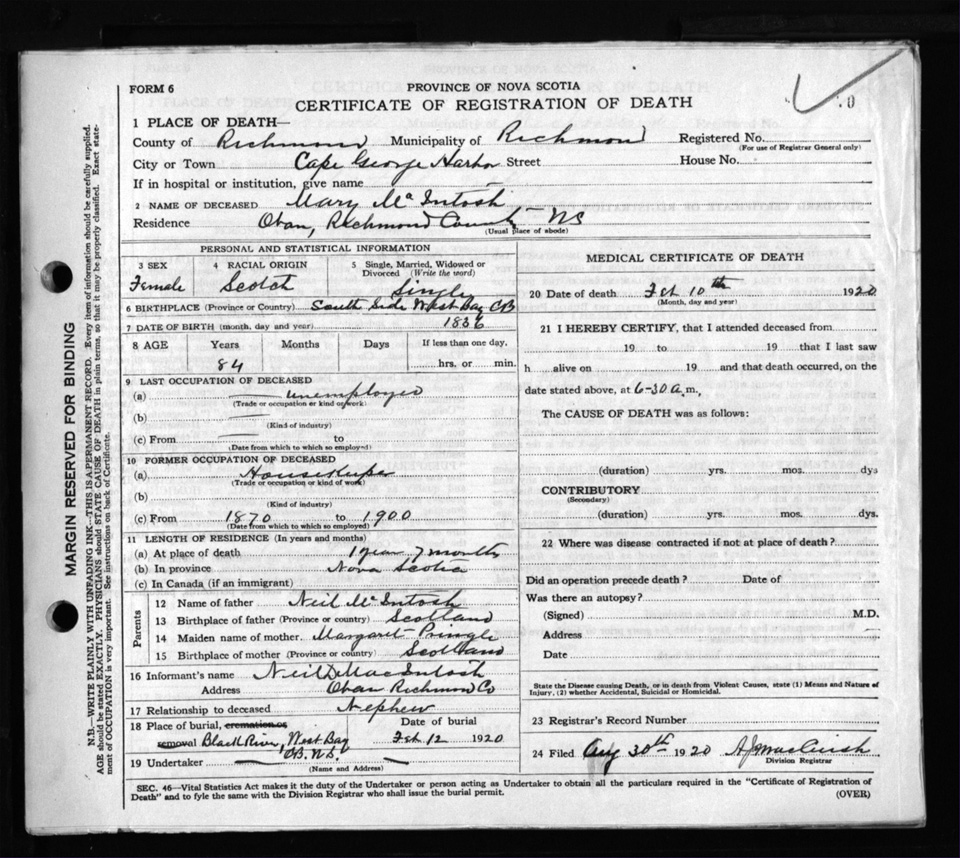 FORM 6
PROVINCE OF NOVA SCOTIA
CERTIFICATE OF REGISTRATION OF DEATH
1 PLACE OF DEATH—
County of Richmond Municipality of Richmond Registered No.
(For use of Registrar General only)
City or Town Cape George Harbor Street House No.
If in hospital or institution, give name —
2 NAME OF DECEASED Mary McIntosh
Residence Oban, Richmond County NS
(Usual place of abode)
PERSONAL AND STATISTICAL INFORMATION
3 SEX 4 RACIAL ORIGIN 5 Single, Married, Widowed or Divorced (Write the word)
Female Scotch Single
6 BIRTHPLACE (Province or Country) South Side West Bay CB
7 DATE OF BIRTH (month, day and year) 1836
8 AGE Years Months Days If less than one day,
84 hrs. or min.
9 LAST OCCUPATION OF DECEASED
(a) unemployed
(Trade or occupation or kind of work)
(b) —
(Kind of industry)
(c) From — to
(Date from which to which so employed)
10 FORMER OCCUPATION OF DECEASED
(a) Housekeeper
(Trade or occupation or kind of work)
(b)
(Kind of industry)
(c) From 1870 to 1900
(Date from which to which so employed)
11 LENGTH OF RESIDENCE (In years and months)
(a) At place of death 1 year 7 months
(b) In province Nova Scotia
(c) In Canada (if an immigrant)
Parents
12 Name of father Neil McIntosh
13 Birthplace of father (Province or country) Scotland
14 Maiden name of mother Margaret Pringle
15 Birthplace of mother (Province or country) Scotland
16 Informant's name Neil D MacIntosh
Address Oban Richmond Co
17 Relationship to deceased Nephew
18 Place of burial, cremation or Date of burial
removal Black River, West Bay Feb 12 1920
CB. N.S.
19 Undertaker —
(Name and Address)
MEDICAL CERTIFICATE OF DEATH
20 Date of death Feb 10th 1920
(Month, day and year)
21 I HEREBY CERTIFY, that I attended deceased from
19 to 19 that I last saw
h alive on 19 and that death occurred, on the
date stated above, at 6-30 a.m.
The CAUSE OF DEATH was as follows:
(duration) yrs. mos. dys
CONTRIBUTORY
(Secondary)
(duration) yrs. mos. dys.
22 Where was disease contracted if not at place of death?
Did an operation precede death? Date of
Was there an autopsy?
(Signed) M.D.
Address
Date
State the Disease causing Death, or in death from Violent Causes, state (1) Means and Nature of
Injury, (2) whether Accidental, Suicidal or Homicidal.
23 Registrar's Record Number
24 Filed Aug 30th 1920
Division Registrar
SEC. 46—Vital Statistics Act makes it the duty of the Undertaker or person acting as Undertaker to obtain all the particulars required in the "Certificate of Registration of
Death" and to fyle the same with the Division Registrar who shall issue the burial permit.
(OVER)
MARGIN RESERVED FOR BINDING
N.B.—WRITE PLAINLY WITH UNFADING INK—THIS IS A PERMANENT RECORD. Every item of information should be carefully supplied.
AGE should be stated EXACTLY. PHYSICIANS should STATE CAUSE OF DEATH in plain terms, so that it may be properly classified. Exact state-
ment of OCCUPATION is very important. See instructions on back of Certificate.